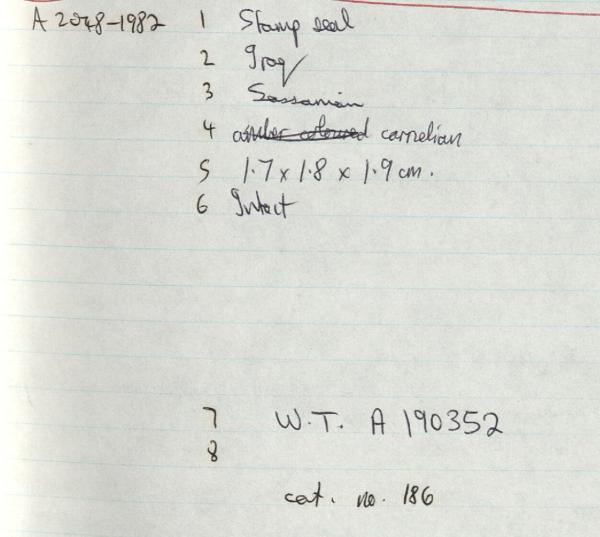 A 2048-1982 1 Stamp seal
2 Iraq
3 Sassanian
4 amber coloured carnelian
5 1.7 x 1.8 x 1.9 cm.
6 Intact
7 W.T. A 190352
8
cat. no. 186